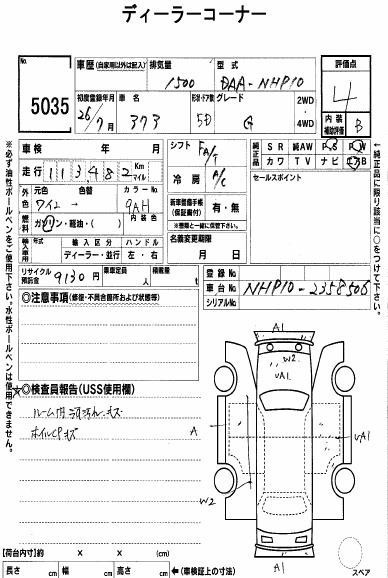 ディーラーコーナー
No.
5035
車歴 (自家用以外は記入)
排気量
1500
型式
DAA-NHP10
評価点
4
内装
補助評価
B
初度登録年月
26/7月
車名
373
形状・ドア数
5D
グレード
G
2WD
・
4WD
車検 年 月
シフト
FA/T
走行 113482 Km
マイル
冷房
A/C
純正品
SR 純AW PS PW
カワ TV ナビ エアB
セールスポイント
外色
元色 色替 カラーNo.
ワイン 9AH
燃料
ガソリン・軽油・( )
内装色
新車整備手帳
(保証書付)
有・無
※整備手帳と一緒に保管下さい。
輸入車用
形式 輸入区分 ハンドル
ディーラー・並行 左・右
名義変更期限
月 日
リサイクル
預託金
9130円
乗車定員
人
積載量
t
登録No
車台No NHP10-2358506
シリアルNo
◎注意事項 (修復・不具合箇所および状態等)
★◎検査員報告 (USS使用欄)
ルーム内 ヨゴレ、キズ
ホイルCPキズ
A1
W2
UA1
A
UA1
W2
A1
スペア
【荷台内寸】約 × × (cm)
長さ cm 幅 cm 高さ cm ←(車検証上の寸法)
※必ず油性ボールペンをご使用下さい。水性ボールペンは使用できません。
←純正品に限り該当に○をつけて下さい。